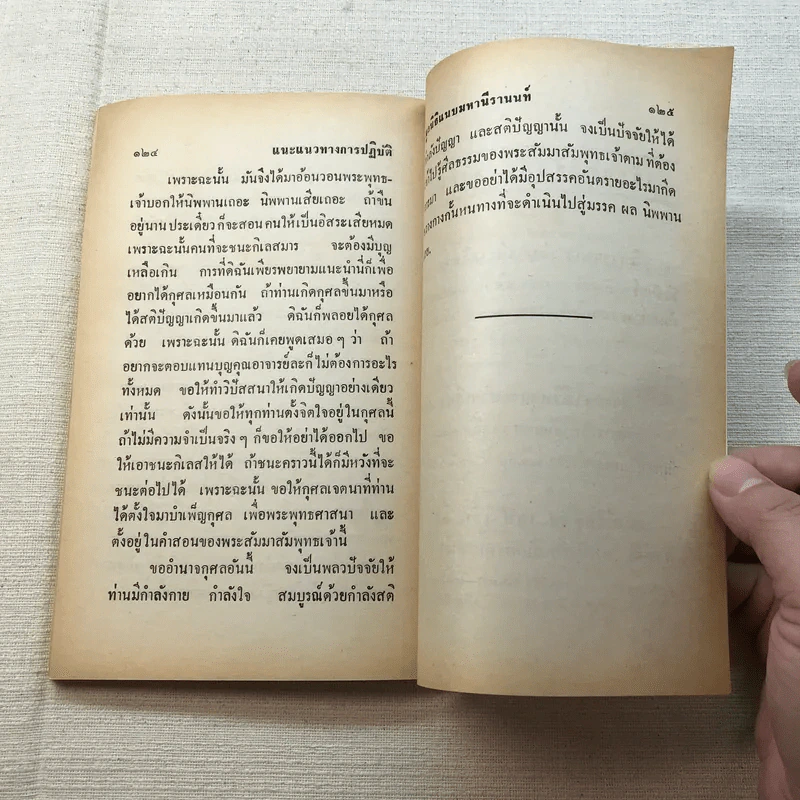 ๑๒๔ แนะแนวทางการปฏิบัติ
เพราะฉะนั้น มันจึงได้มาอ้อนวอนพระพุทธ-
เจ้าบอกให้นิพพานเถอะ นิพพานเสียเถอะ ถ้าขืน
อยู่นาน ประเดี๋ยวก็จะสอนคนให้เป็นอิสระเสียหมด
เพราะฉะนั้นคนที่จะชนะกิเลสมาร จะต้องมีบุญ
เหลือเกิน การที่ดิฉันเพียรพยายามแนะนำนี่ก็เพื่อ
อยากได้กุศลเหมือนกัน ถ้าท่านเกิดกุศลขึ้นมาหรือ
ได้สติปัญญาเกิดขึ้นมาแล้ว ดิฉันก็พลอยได้กุศล
ด้วย เพราะฉะนั้น ดิฉันก็เคยพูดเสมอ ๆ ว่า ถ้า
อยากจะตอบแทนบุญคุณอาจารย์ละก็ไม่ต้องการอะไร
ทั้งหมด ขอให้ทำวิปัสสนาให้เกิดปัญญาอย่างเดียว
เท่านั้น ดังนั้นขอให้ทุกท่านตั้งจิตใจอยู่ในกุศลนี้
ถ้าไม่มีความจำเป็นจริง ๆ ก็ขอให้อย่าได้ออกไป ขอ
ให้เอาชนะกิเลสให้ได้ ถ้าชนะคราวนี้ได้ก็มีหวังที่จะ
ชนะต่อไปได้ เพราะฉะนั้น ขอให้กุศลเจตนาที่ท่าน
ได้ตั้งใจมาบำเพ็ญกุศล เพื่อพระพุทธศาสนา และ
ตั้งอยู่ในคำสอนของพระสัมมาสัมพุทธเจ้านี้
ขออำนาจกุศลอันนี้ จงเป็นพลวปัจจัยให้
ท่านมีกำลังกาย กำลังใจ สมบูรณ์ด้วยกำลังสติ
แนบมหานีรานนท์ ๑๒๕
ปัญญา และสติปัญญานั้น จงเป็นปัจจัยให้ได้
ไปรู้ศีลธรรมของพระสัมมาสัมพุทธเจ้าตาม ที่ต้อง
และขออย่าได้มีอุปสรรคอันตรายอะไรมากีด
ทางกั้นหนทางที่จะดำเนินไปสู่มรรค ผล นิพพาน